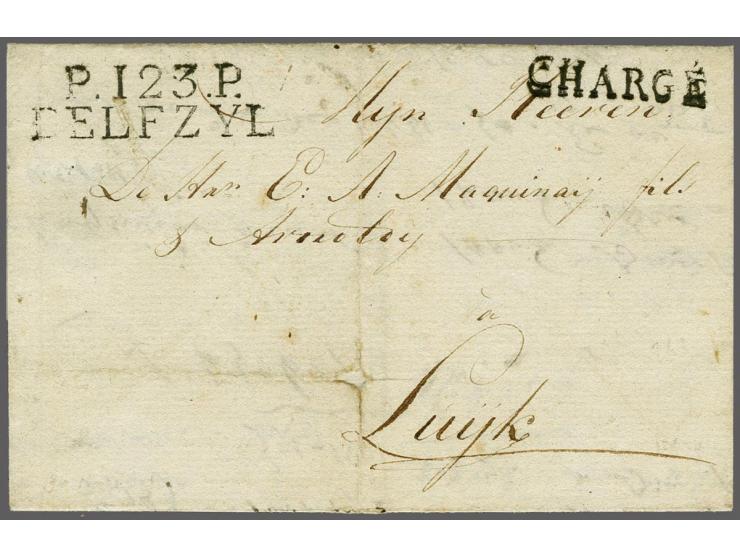 P.123.P.
DELFZYL
CHARGÉ
Myn Heeren
De Hrn E: A. Maquinaÿ fils
& Arnoldy
à
Luÿk